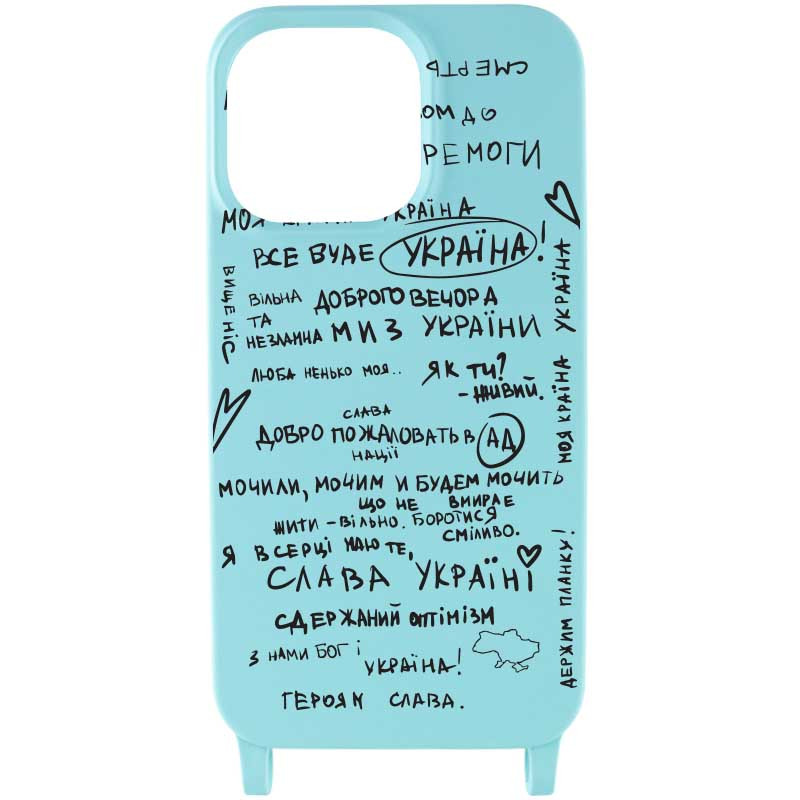 СМЕРТЬ
ДО
РЕМОГИ
МОЯ КРАЇНА УКРАЇНА
ВСЕ БУДЕ УКРАЇНА!
ВИЩЕ НІС
ВІЛЬНА
ТА
НЕЗЛАМНА
ДОБРОГО ВЕЧОРА
МИ З УКРАЇНИ
ЛЮБА НЕНЬКО МОЯ..
ЯК ТИ?
-ЖИВИЙ.
МОЯ КРАЇНА УКРАЇНА
СЛАВА
ДОБРО ПОЖАЛОВАТЬ В АД
НАЦІЇ
МОЧИЛИ, МОЧИМ И БУДЕМ МОЧИТЬ
ЩО НЕ ВМИРАЕ
ЖИТИ - ВІЛЬНО. БОРОТИСЯ
СМІЛИВО.
Я В СЕРЦІ МАЮ ТЕ,
СЛАВА УКРАЇНІ
ДЕРЖИМ ПЛАНКУ!
СДЕРЖАНИЙ ОПТІМІЗМ
З НАМИ БОГ І
УКРАЇНА!
ГЕРОЯМ СЛАВА.